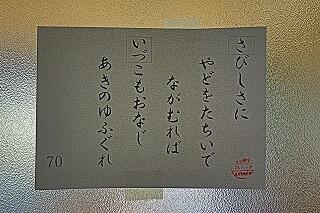 さびしさに
やどをたちいで
ながむれば
いづこもおなじ
あきのゆふぐれ
70